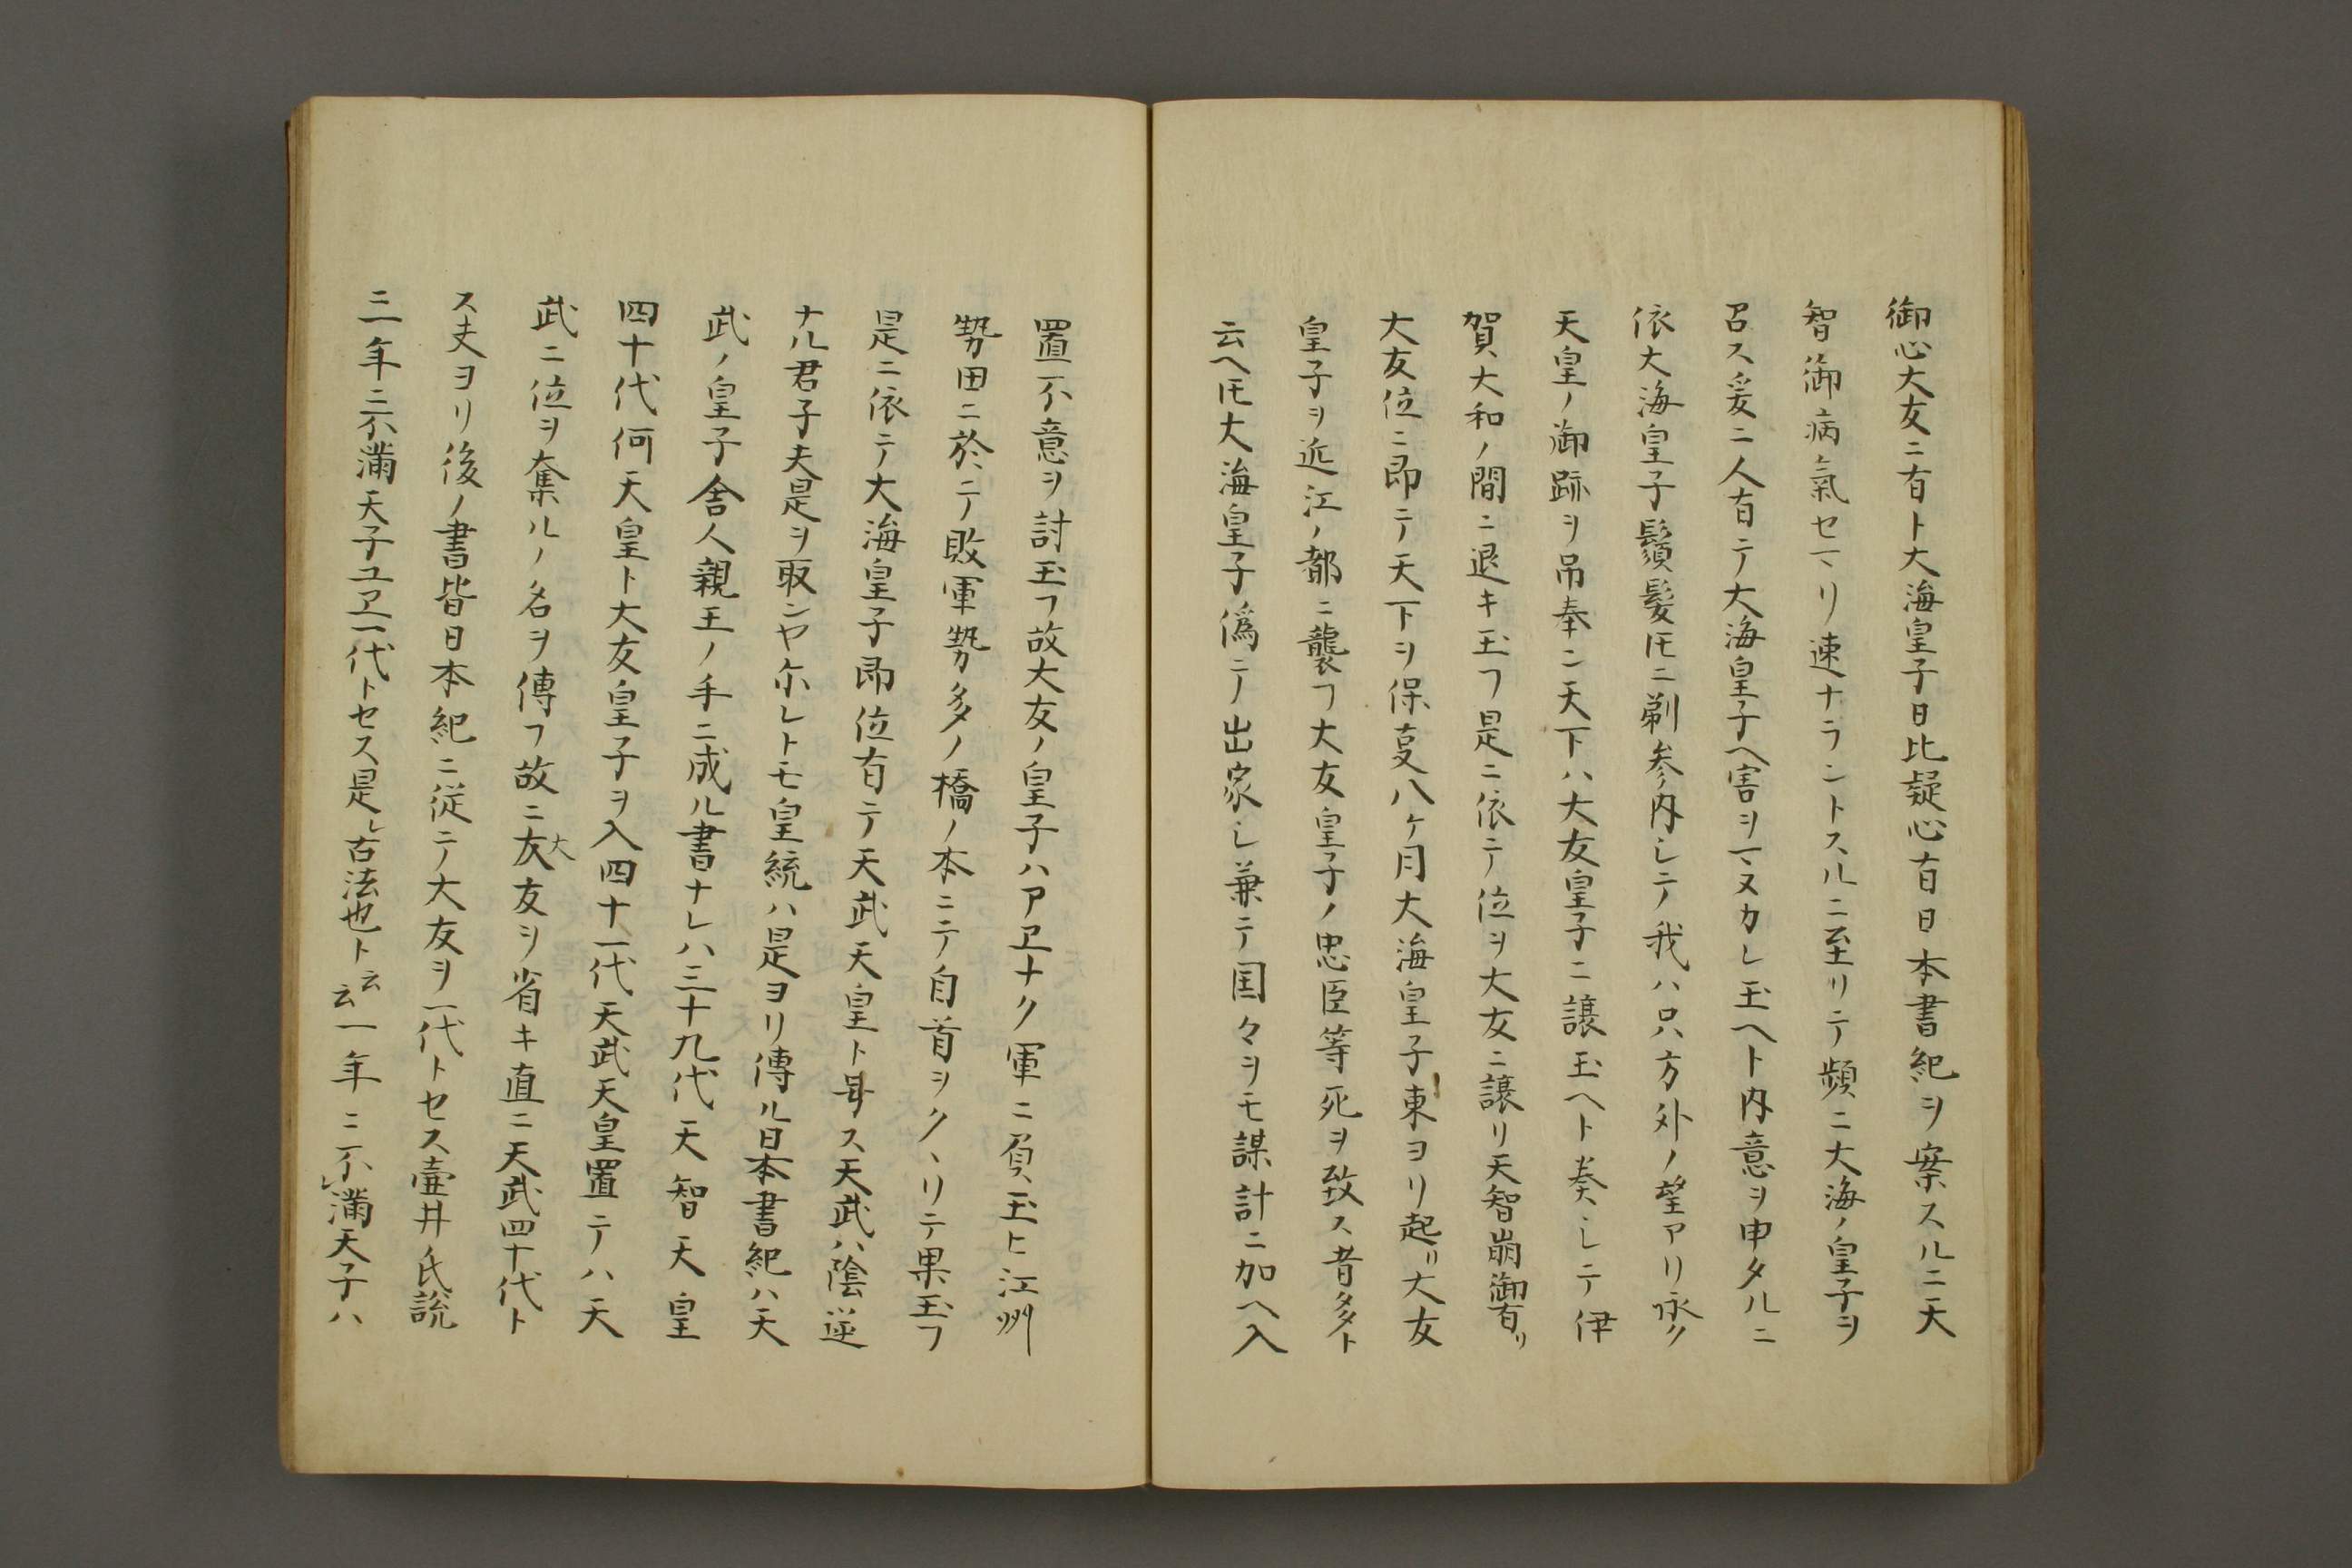 御心大友ニ有ト大海皇子日比疑心有日本書紀ヲ案スルニ天
智御病氣セマリ速ナラントスルニ至リテ頻ニ大海ノ皇子ヲ
召ス爰ニ人有テ大海皇子ヘ害ヲマヌカレ玉ヘト内意ヲ申タルニ
依大海皇子鬚髪𪜈ニ剃参内シテ我ハ只方外ノ望アリ永ク
天皇ノ御跡ヲ吊奉ン天下ハ大友皇子ニ譲玉ヘト奏シテ伊
賀大和ノ間ニ退キ玉フ是ニ依テ位ヲ大友ニ譲リ天智崩御有リ
大友位ニ即テ天下ヲ保夏八ヶ月大海皇子東ヨリ起リ大友
皇子ヲ近江ノ都ニ襲フ大友皇子ノ忠臣等死ヲ致ス者多ト
云ヘ𪜈大海皇子偽テ出家シ兼テ国々ヲモ謀計ニ加ヘ入
置不意ヲ討玉フ故大友ノ皇子ハアヱナク軍ニ負玉ヒ江州
勢田ニ於テ敗軍勢多ノ橋ノ本ニテ自首ヲクヽリテ果玉フ
是ニ依テ大海皇子即位有テ天武天皇ト号ス天武ハ陰逆
ナル君子夫是ヲ取ンヤ尓レトモ皇統ハ是ヨリ傳ル日本書紀ハ天
武ノ皇子舎人親王ノ手ニ成ル書ナレハ三十九代天智天皇
四十代何天皇ト大友皇子ヲ入四十一代天武天皇置テハ天
武ニ位ヲ奪ルノ名ヲ傳フ故ニ大友ヲ省キ直ニ天武四十代ト
ス夫ヨリ後ノ書皆日本紀ニ従テ大友ヲ一代トセス壷井氏説
ニ一年ニ不滿天子ユヱ一代トセス是レ古法也ト云云一年ニ不レ滿天子ハ